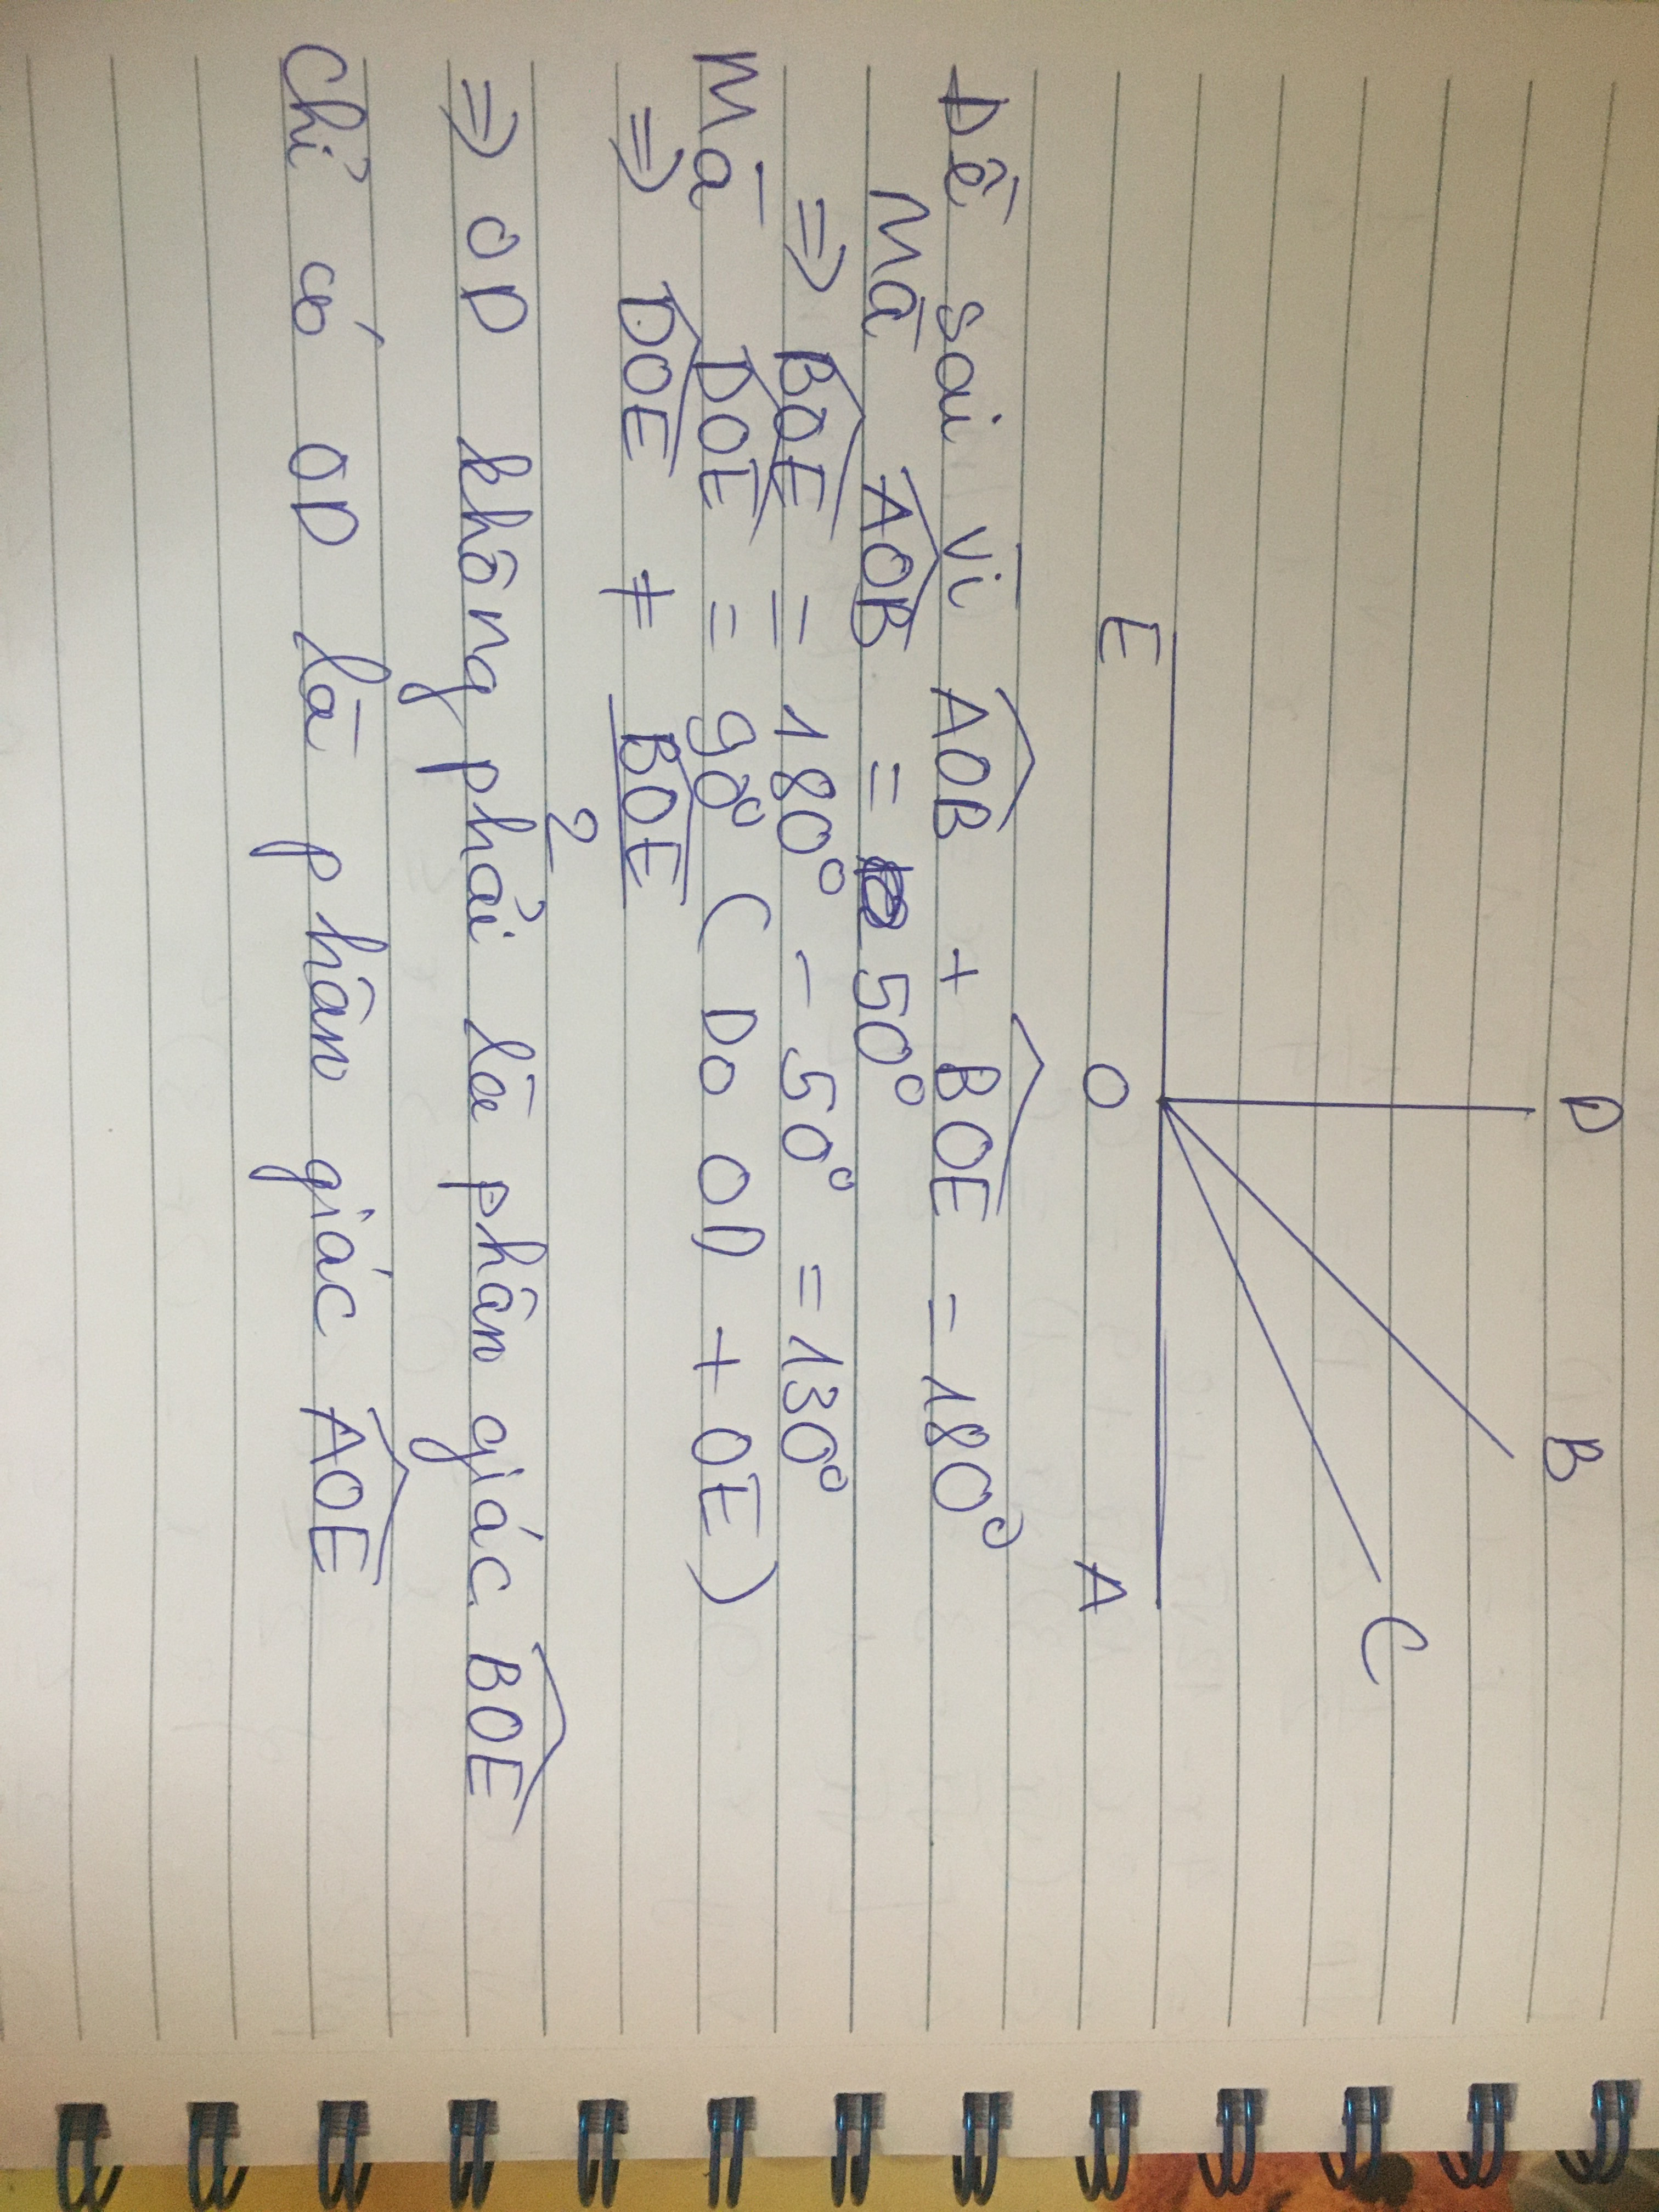 D
B
C
E
O
A
Đề sai vì AOB + BOE = 180°
Mà AOB = 50°
=> BOE = 180° - 50° = 130°
Mà DOE = 90° (Do OD + OE)
=> DOE ≠ BOE
2
=> OD không phải là phân giác BOE
Chỉ có OD là phân giác AOE